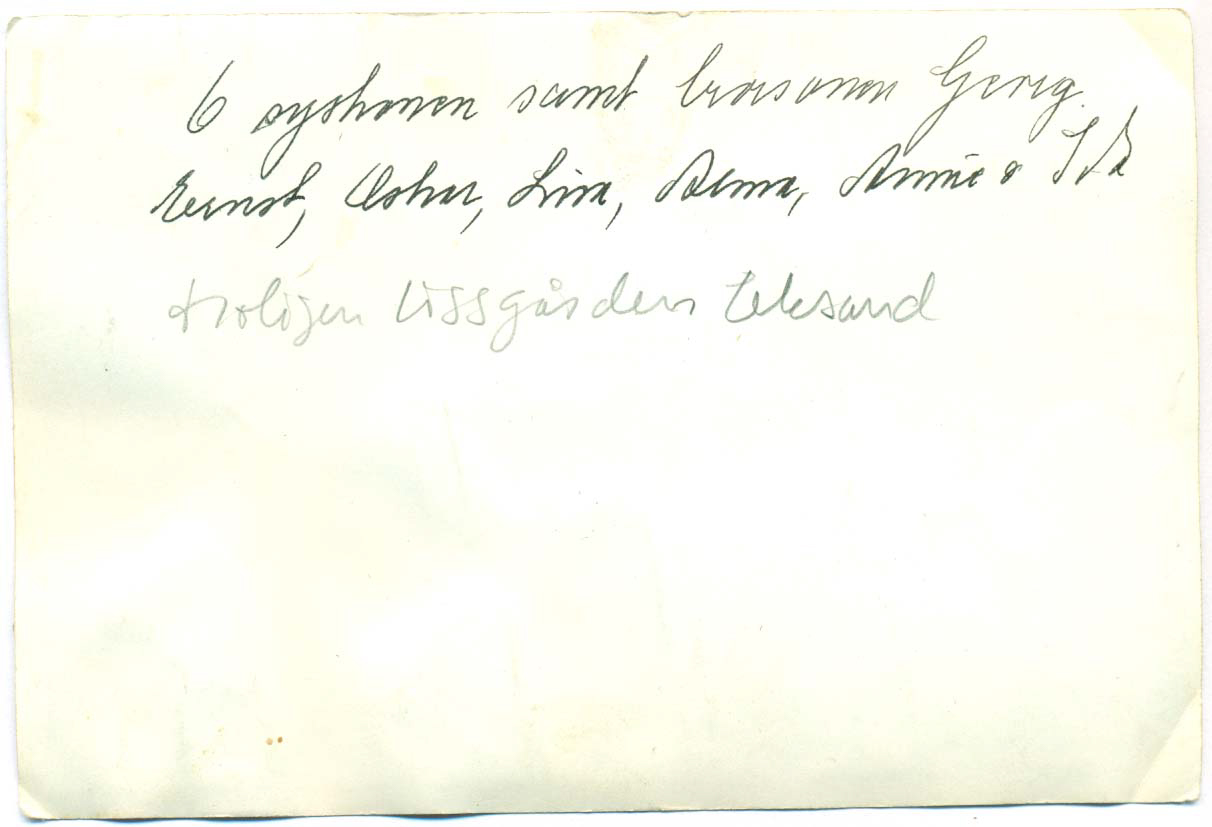 6 syskonen samt brorsonen Georg.
Ernst, Oskar, Lisa, Alma, Annie &
troligen Lissgården Leksand